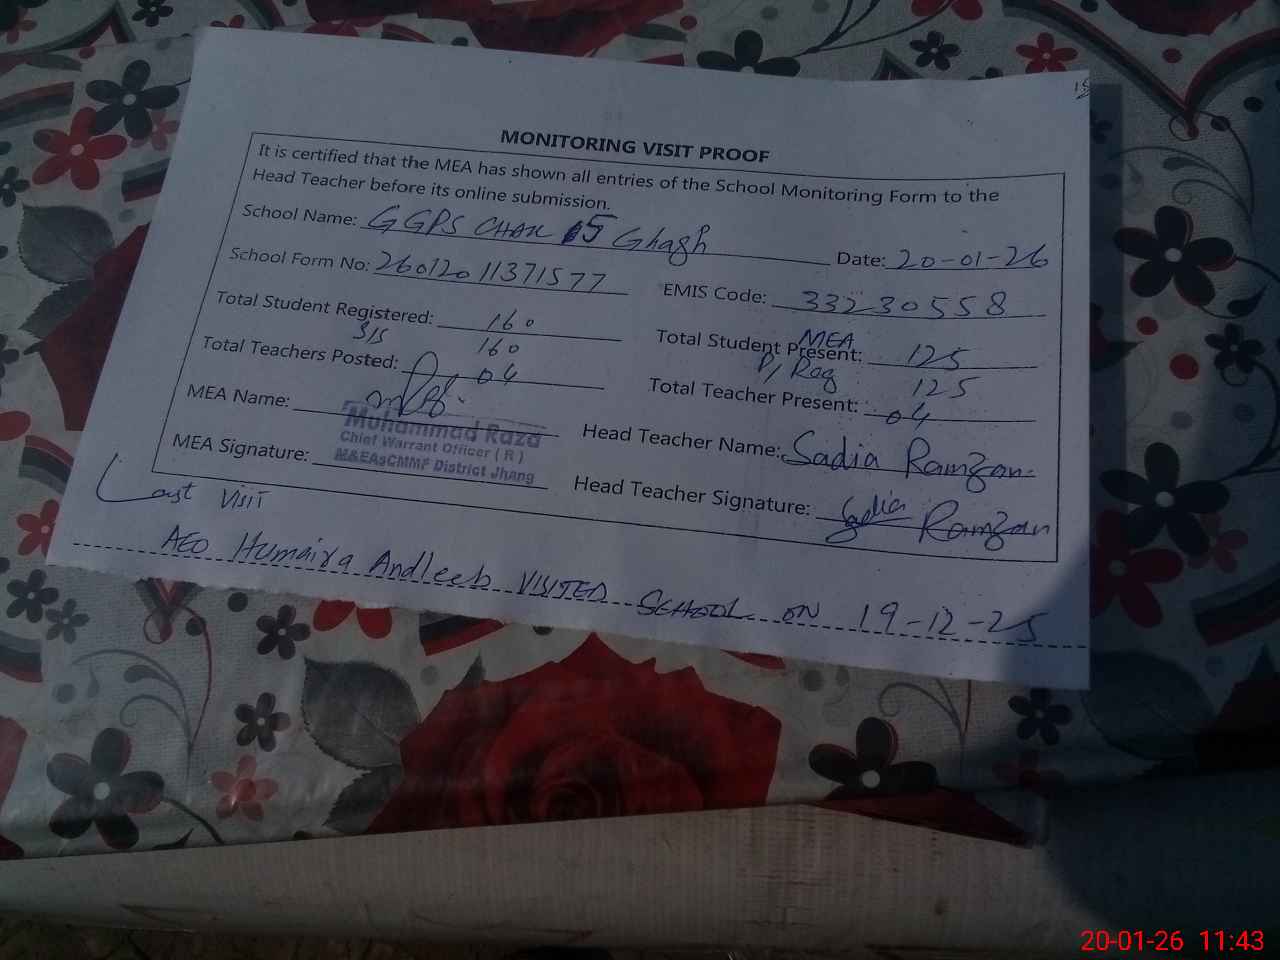 MONITORING VISIT PROOF
It is certified that the MEA has shown all entries of the School Monitoring Form to the
Head Teacher before its online submission.
School Name: GGPS CHAK 15 Ghagh Date: 20-01-26
School Form No: 26012011371577 EMIS Code: 33230558
Total Student Registered: 160 Total Student Present: MEA 125
SIS 160 P/Reg 125
Total Teachers Posted: 04 Total Teacher Present: 04
MEA Name: Head Teacher Name: Sadia Ramzan
Muhammad Raza
Chief Warrant Officer ( R )
M&EAsCMMF District Jhang
MEA Signature: Head Teacher Signature: Sadia Ramzan
Last VISIT
AEO Humaira Andleeb VISITED SCHOOL ON 19-12-25
20-01-26 11:43